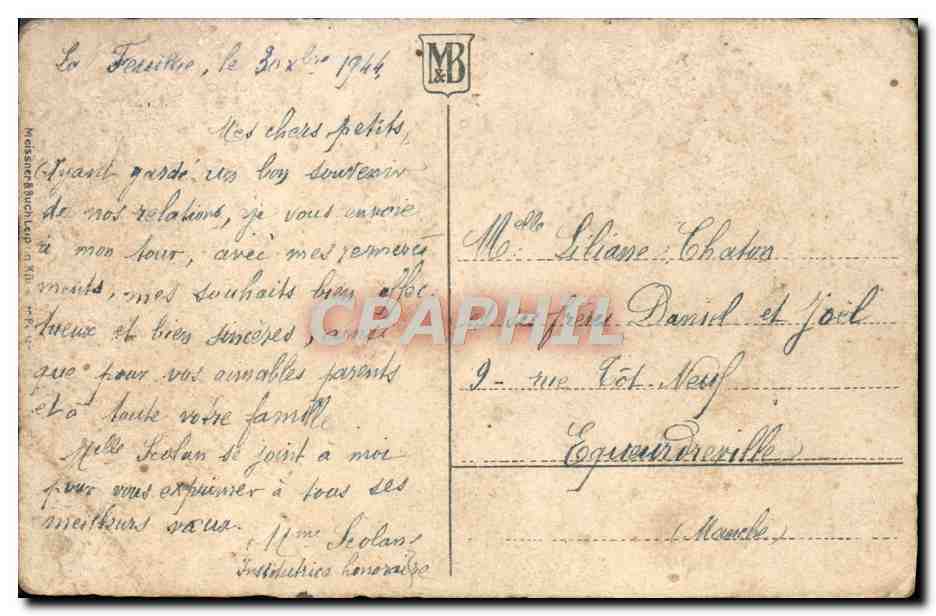 La Feuillie, le 30 xbre 1944
M&B
Mes chers petits,
Ayant gardé un bon souvenir
de nos relations, je vous envoie
à mon tour, avec mes remercî
ments, mes souhaits bien affec
tueux et bien sincères, ainsi
que pour vos aimables parents
et à toute votre famille.
Melle Scolan se joint à moi
pour vous exprimer à tous ses
meilleurs vœux.
Mme Scolan
Institutrice honoraire
Meissner & Buch Leip
Melle Liliane Chaton
et ses frères Daniel et Joël
9 - rue Tôt-Neuf
Equeurdreville
(Manche)
CPARHIL